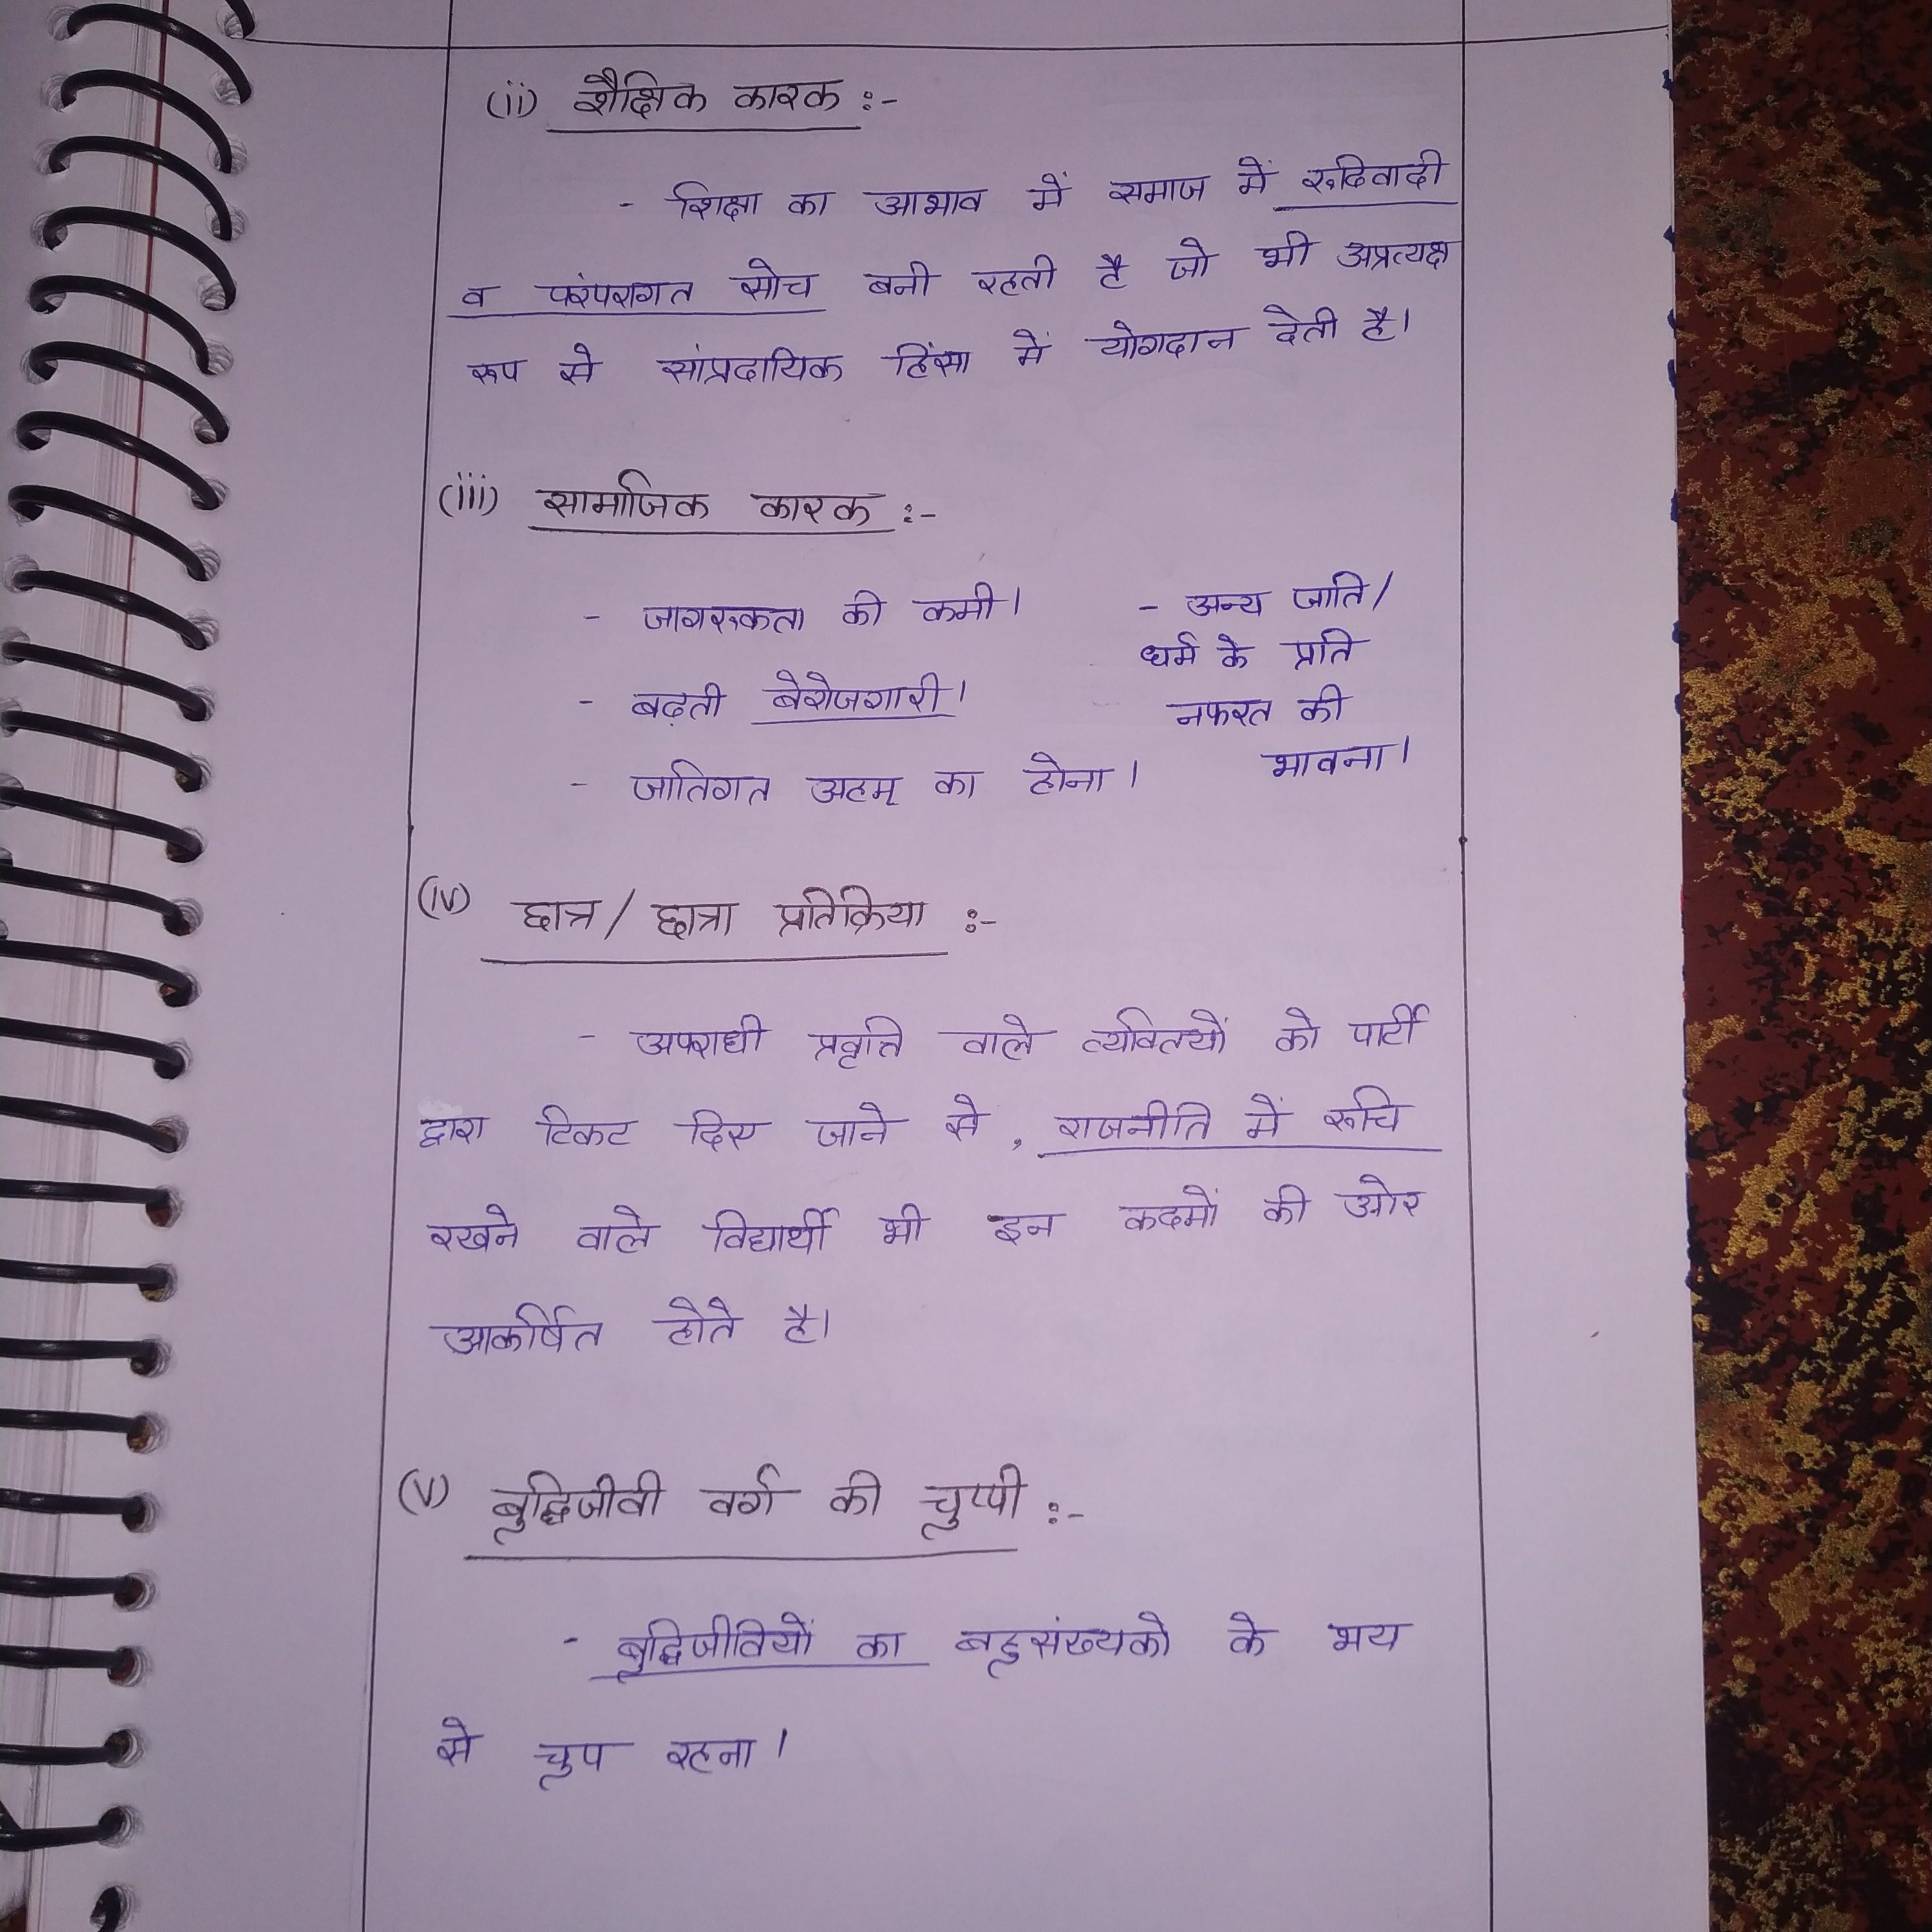 (ii) शैक्षिक कारक :-
- शिक्षा का आभाव में समाज में रुढिवादी
व परंपरागत सोच बनी रहती है जो भी अप्रत्यक्ष
रूप से सांप्रदायिक हिंसा में योगदान देती है।
(iii) सामाजिक कारक :-
- जागरुकता की कमी।
- बढ़ती बेरोजगारी।
- जातिगत अहम् का होना।
- अन्य जाति/
धर्म के प्रति
नफरत की
भावना।
(iv) छात्र/छात्रा प्रतिक्रिया :-
- अपराधी प्रवृत्ति वाले व्यक्तियों को पार्टी
द्वारा टिकट दिए जाने से, राजनीति में रुचि
रखने वाले विद्यार्थी भी इन कदमों की ओर
आकर्षित होते है।
(v) बुद्धिजीवी वर्ग की चुप्पी :-
- बुद्धिजीवियों का बहुसंख्यको के भय
से चुप रहना।